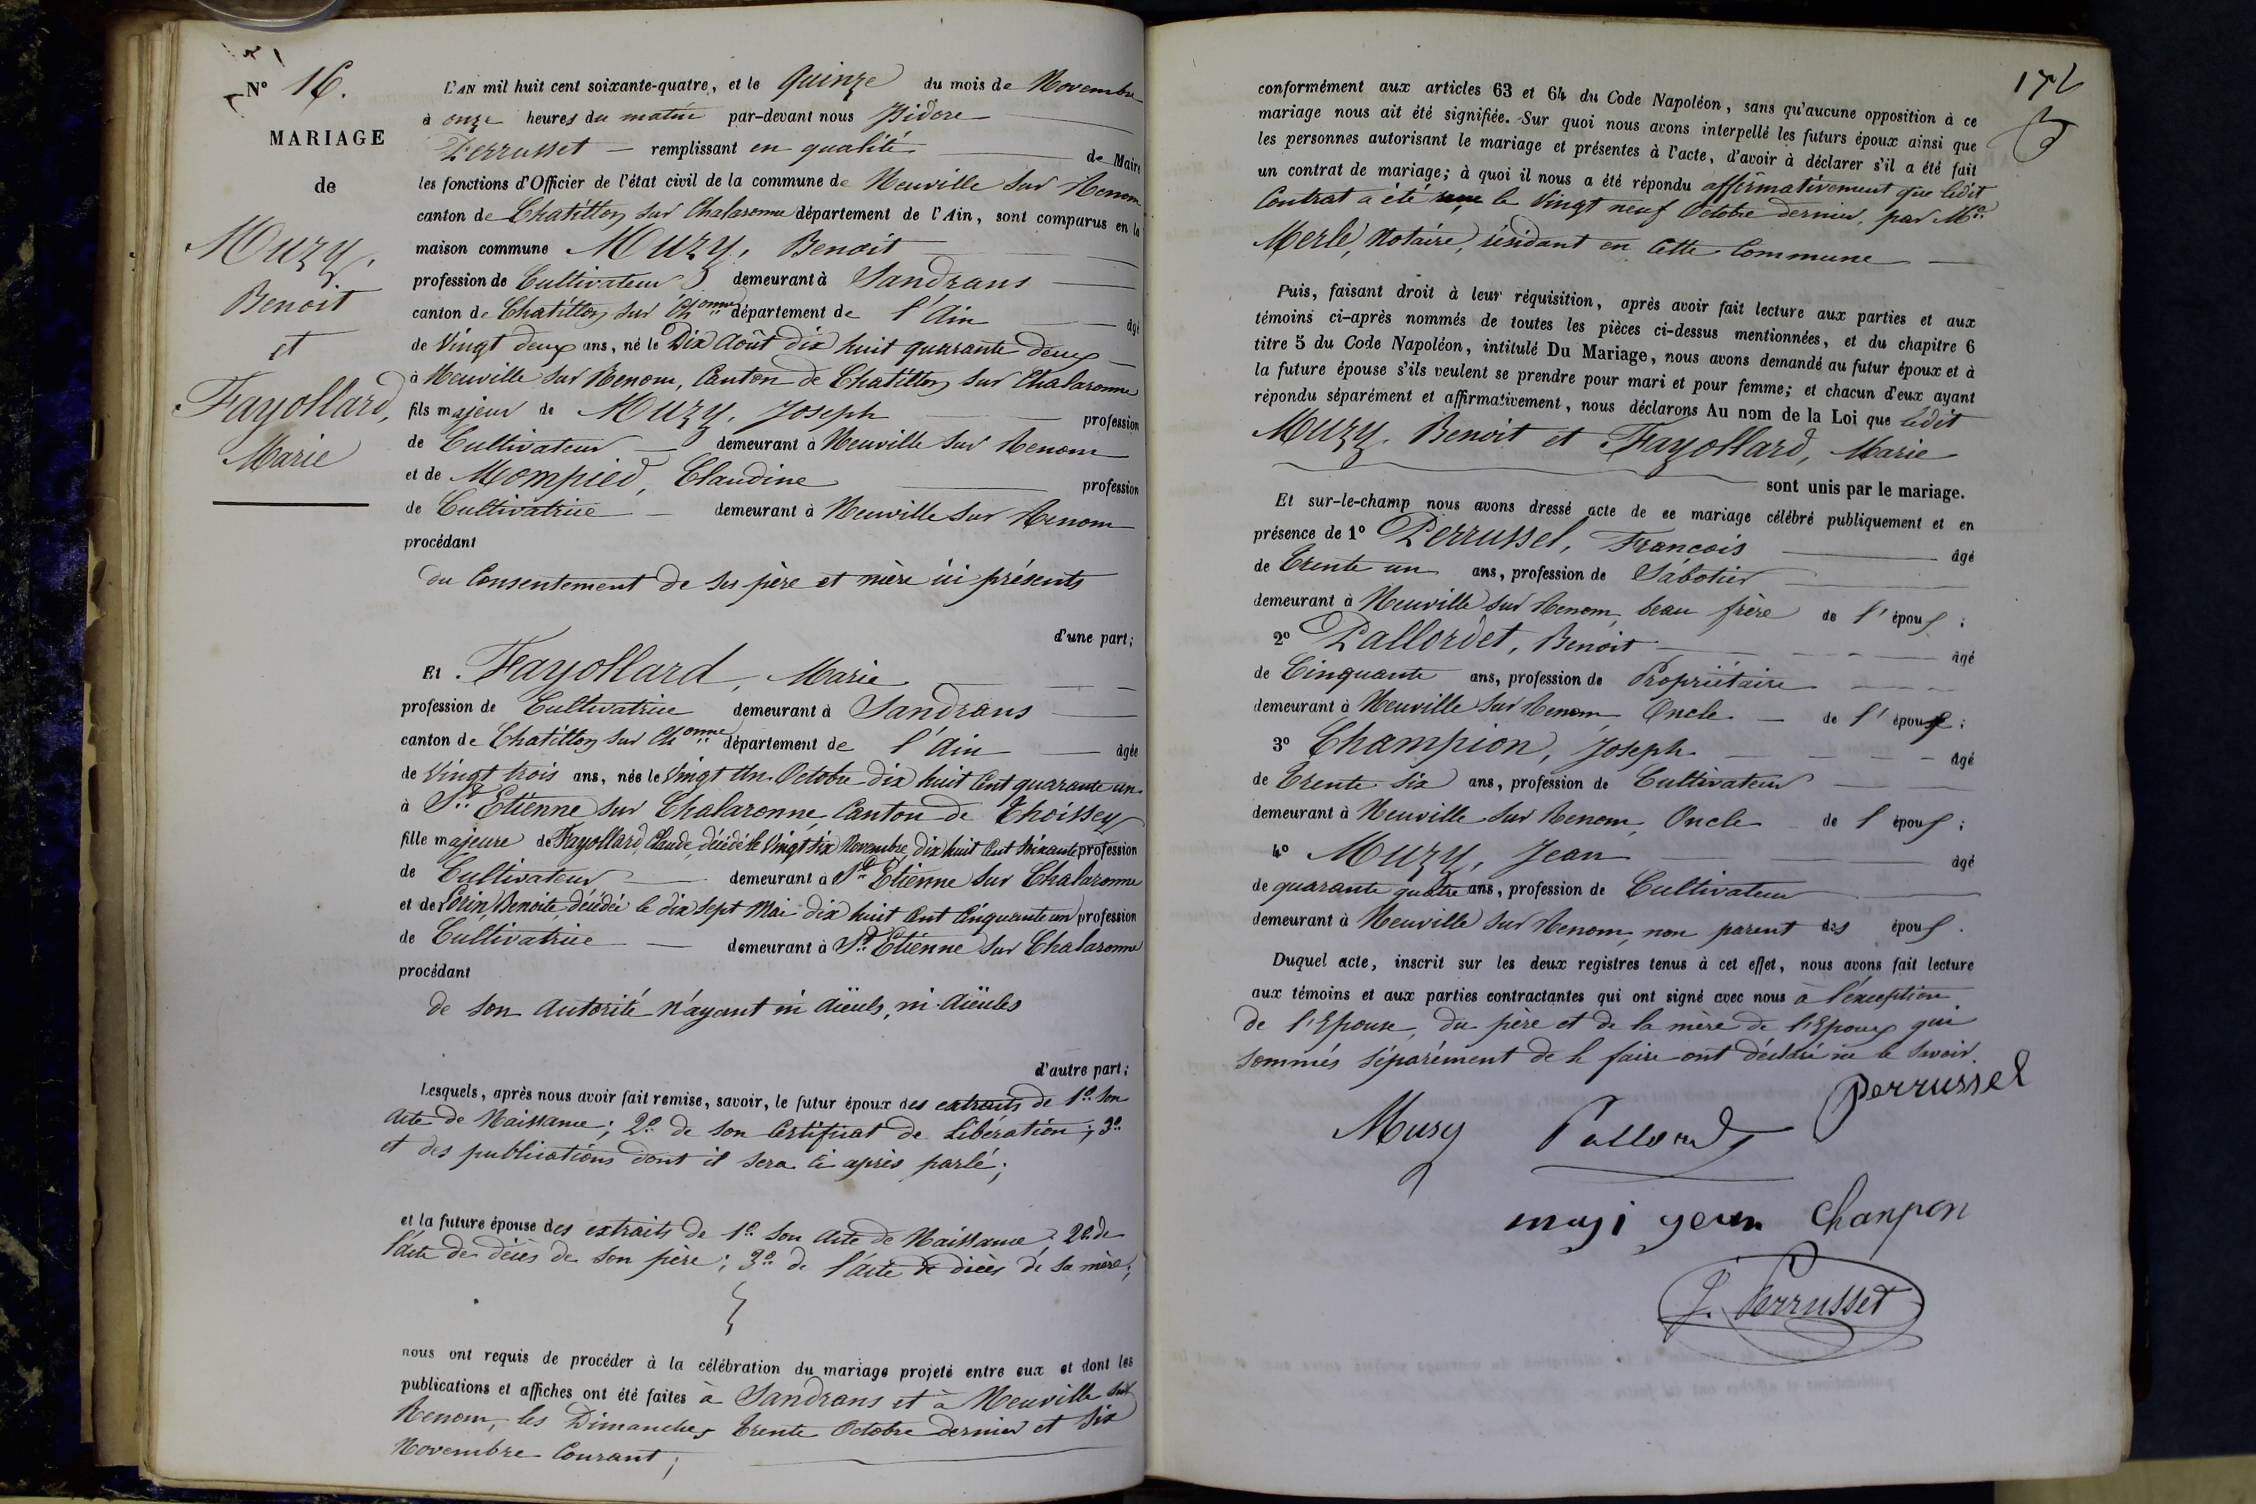 N° 16.
MARIAGE
de
Muzy,
Benoit
et
Fayollard,
Marie
L'AN mil huit cent soixante-quatre, et le Quinze du mois de Novembre
à onze heures du matin par-devant nous Isidore
Perrusset remplissant en qualité de Maire
les fonctions d'Officier de l'état civil de la commune de Neuville sur Renom
canton de Chatillon sur Chalaronne département de l'Ain, sont comparus en la
maison commune Muzy, Benoit
profession de Cultivateur demeurant à Sandrans
canton de Chatillon sur Chonne département de l'Ain âgé
de Vingt deux ans, né le Dix Août dix huit quarante deux
à Neuville sur Renom, Canton de Chatillon sur Chalaronne
fils majeur de Muzy, Joseph profession
de Cultivateur demeurant à Neuville sur Renom
et de Mompied, Claudine profession
de Cultivatrice demeurant à Neuville sur Renom
procédant
du Consentement de ses père et mère ici présents
d'une part;
Et Fayollard, Marie
profession de Cultivatrice demeurant à Sandrans
canton de Chatillon sur Chonne département de l'Ain âgée
de Vingt trois ans, née le Vingt Un Octobre dix huit Cent quarante un
à St Etienne sur Chalaronne, Canton de Thoissey
fille majeure de Fayollard, Claude, décédé le Vingt six Novembre dix huit Cent soixante profession
de Cultivateur demeurant à St Etienne sur Chalaronne
et de Lorin, Benoite, décédée le dix sept Mai dix huit Cent Cinquante un profession
de Cultivatrice demeurant à St Etienne sur Chalaronne
procédant
de son Autorité n'ayant ni aïeuls, ni aïeules
d'autre part;
Lesquels, après nous avoir fait remise, savoir, le futur époux des extraits de 1° Son
Acte de Naissance; 2° de son Certificat de Libération; 3°
et des publications dont il sera Ci après parlé;
et la future épouse des extraits de 1° Son Acte de Naissance; 2° de
l'acte de décès de son père; 3° de l'acte de décès de sa mère;
nous ont requis de procéder à la célébration du mariage projeté entre eux et dont les
publications et affiches ont été faites à Sandrans et à Neuville sur
Renom, les Dimanches trente Octobre dernier et Six
Novembre Courant;
172
conformément aux articles 63 et 64 du Code Napoléon, sans qu'aucune opposition à ce
mariage nous ait été signifiée. Sur quoi nous avons interpellé les futurs époux ainsi que
les personnes autorisant le mariage et présentes à l'acte, d'avoir à déclarer s'il a été fait
un contrat de mariage; à quoi il nous a été répondu affirmativement que ledit
Contrat a été le Vingt neuf Octobre dernier, par Me
Merle, Notaire, résidant en Cette Commune
Puis, faisant droit à leur réquisition, après avoir fait lecture aux parties et aux
témoins ci-après nommés de toutes les pièces ci-dessus mentionnées, et du chapitre 6
titre 5 du Code Napoléon, intitulé Du Mariage, nous avons demandé au futur époux et à
la future épouse s'ils veulent se prendre pour mari et pour femme; et chacun d'eux ayant
répondu séparément et affirmativement, nous déclarons Au nom de la Loi que ledit
Muzy, Benoit et Fayollard, Marie
sont unis par le mariage.
Et sur-le-champ nous avons dressé acte de ce mariage célébré publiquement et en
présence de 1° Perrussel, Francois âgé
de Trente un ans, profession de Sabotier
demeurant à Neuville sur Renom, beau frère de l'époux;
2° Pallordet, Benoit âgé
de Cinquante ans, profession de Propriétaire
demeurant à Neuville sur Renom, Oncle de l'époux;
3° Champion, Joseph âgé
de Trente six ans, profession de Cultivateur
demeurant à Neuville sur Renom, Oncle de l époux;
4° Muzy, Jean âgé
de quarante quatre ans, profession de Cultivateur
demeurant à Neuville sur Renom, non parent des époux.
Duquel acte, inscrit sur les deux registres tenus à cet effet, nous avons fait lecture
aux témoins et aux parties contractantes qui ont signé avec nous à l'exception
de l'Epouse, du père et de la mère de l'Epoux qui
sommés séparément de le faire ont déclaré ne le savoir.
Perrussel
Musy
muzi Chanpon
J. Perrusset